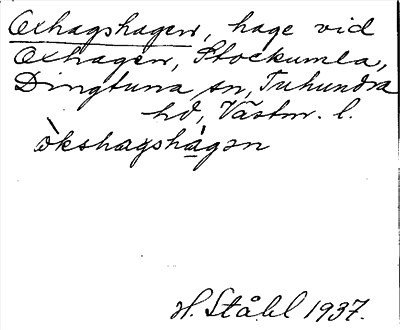 Oxhagshagen, hage vid
Oxhagen, Stockumla,
Dingtuna sn, Tuhundra
hd, Västm. l.
òkshagshá̱gən
H. Ståhl 1937.